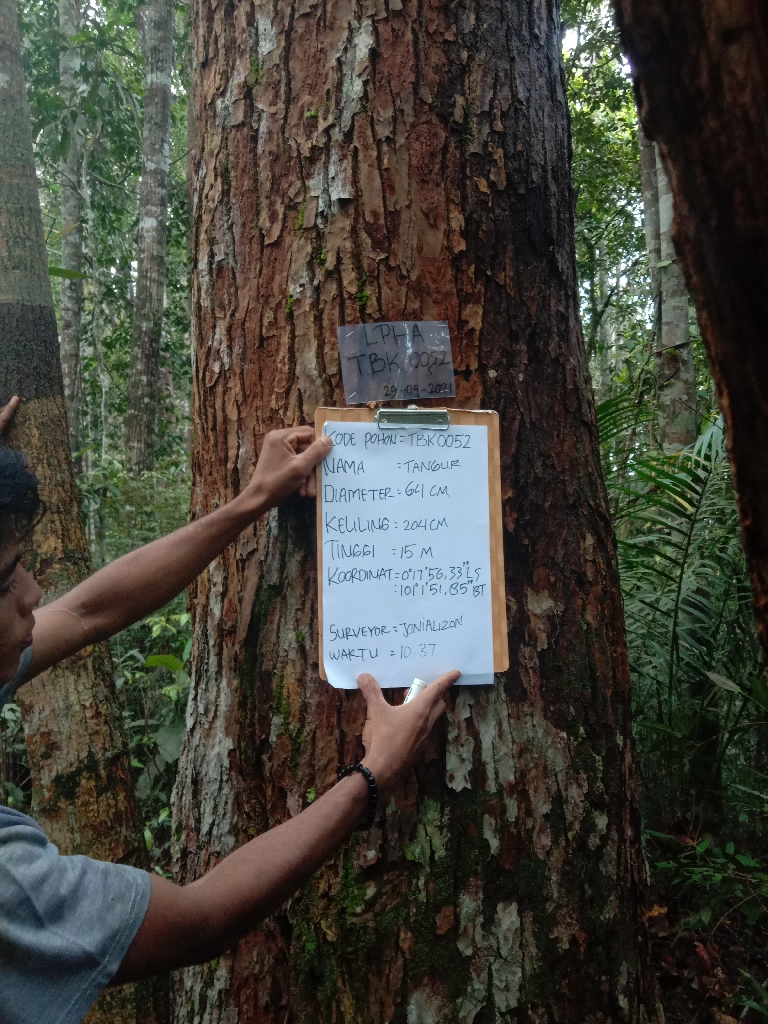 LPHA
TBK 0052
29-04-2021
KODE POHON = TBK0052
NAMA = TANGUR
DIAMETER = 64 CM
KELILING = 204 CM
TINGGI = 15 M
KOORDINAT = 0°17'56,33" LS
: 101°1'51,85" BT
SURVEYOR = JONIALIZON
WAKTU = 10.37